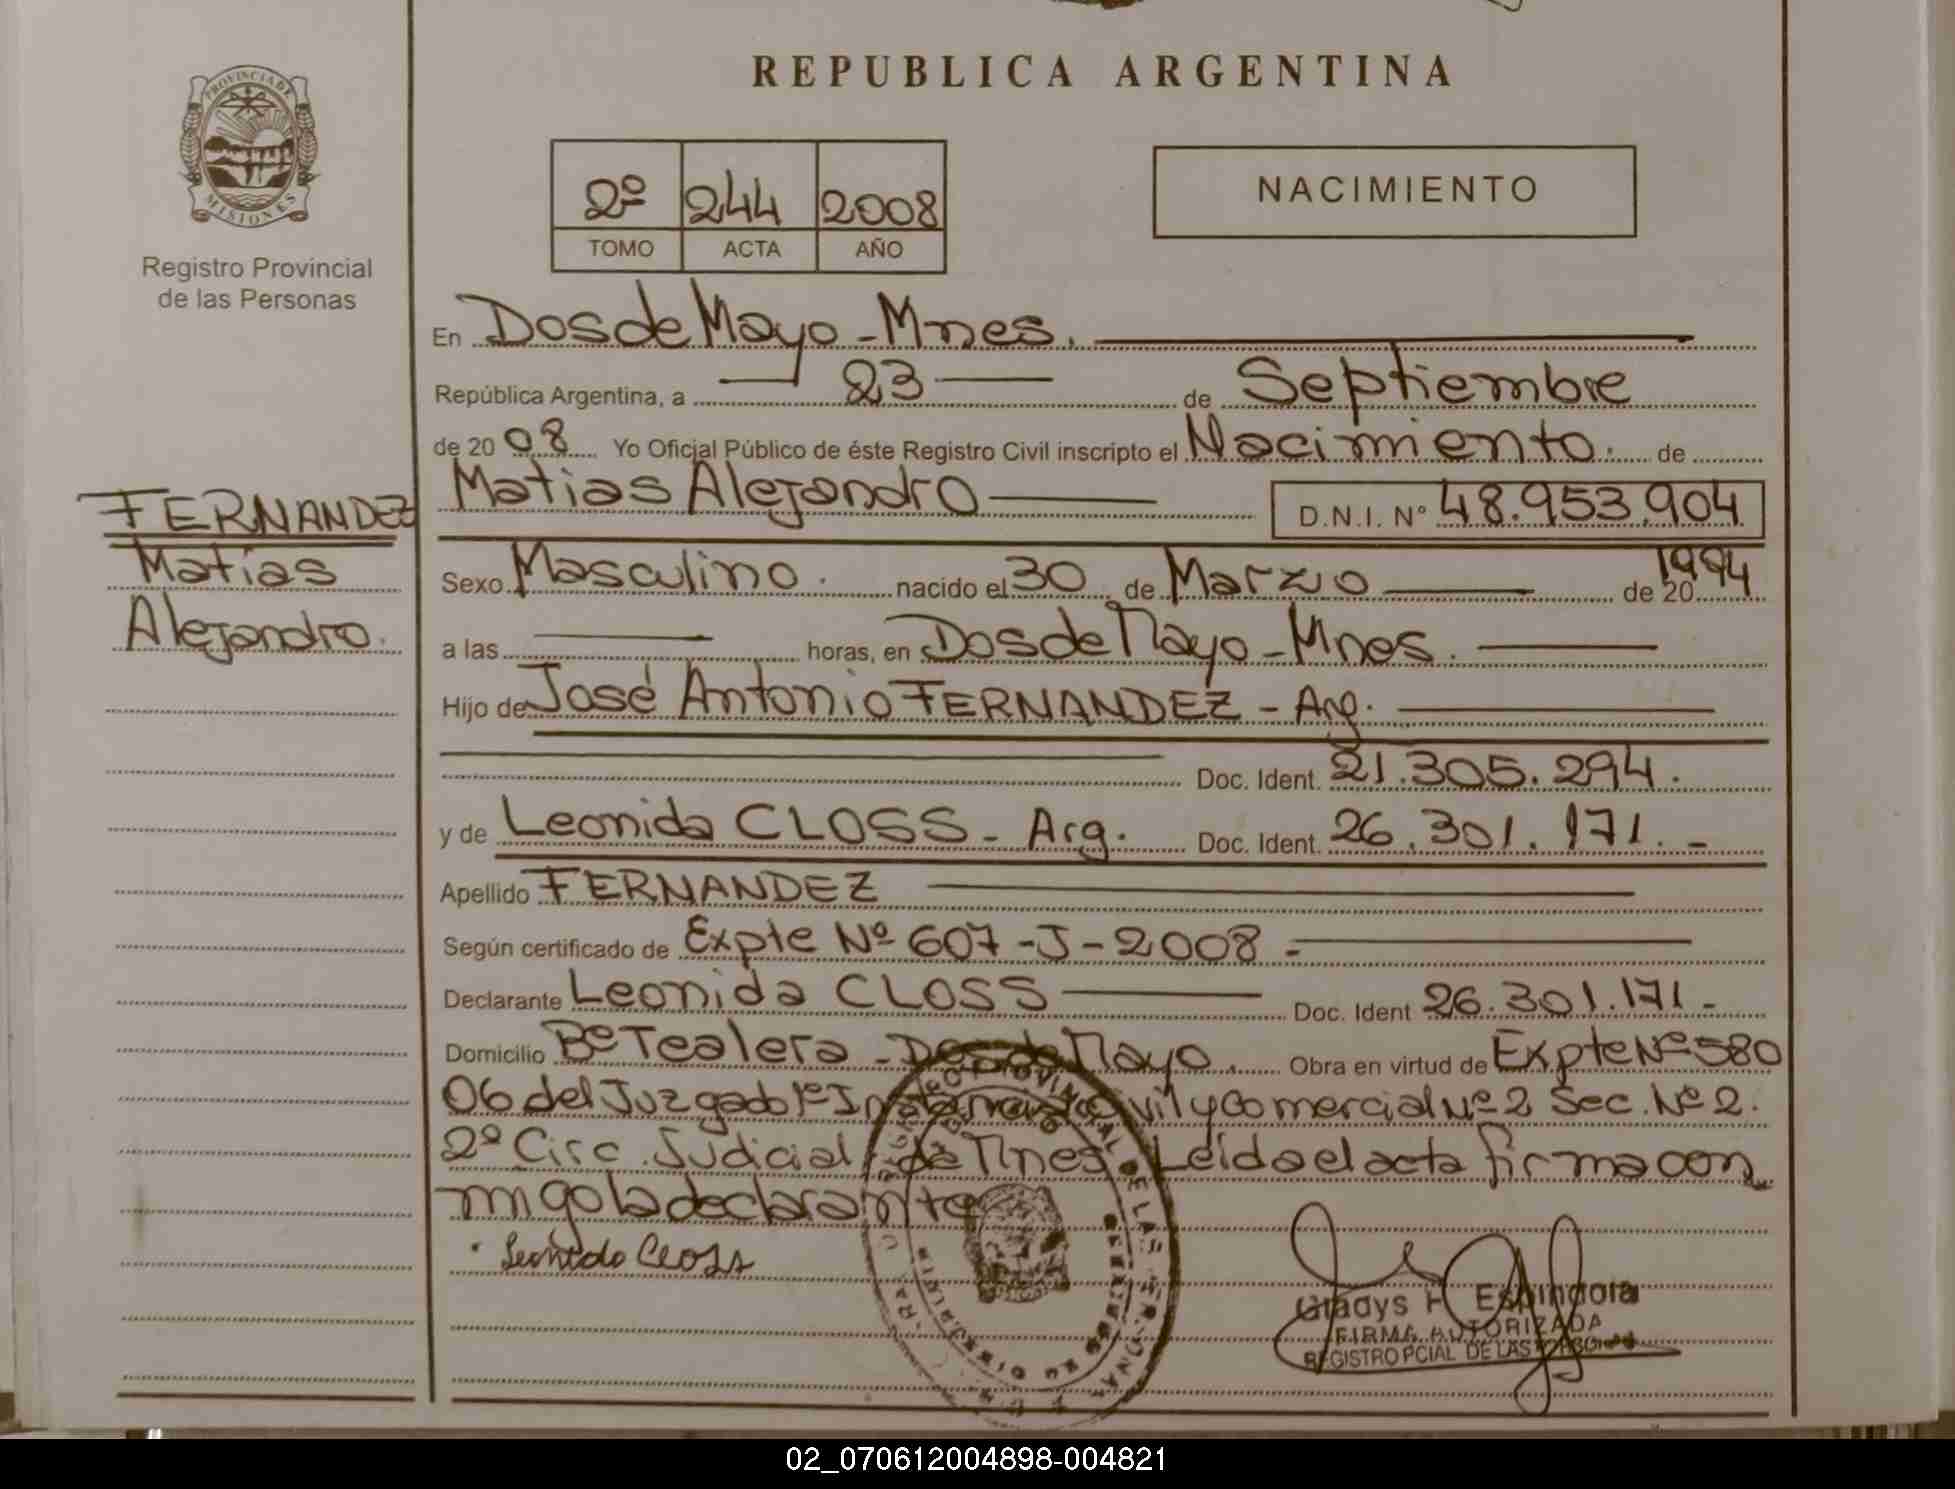 PROVINCIA DE
MISIONES
Registro Provincial
de las Personas
FERNANDEZ
Matias
Alejandro.
REPUBLICA ARGENTINA
2º 244 2008
TOMO ACTA AÑO
NACIMIENTO
En Dos de Mayo - Mnes.
República Argentina, a 23 de Septiembre
de 20 08 Yo Oficial Público de éste Registro Civil inscripto el Nacimiento. de
Matias Alejandro D.N.I. Nº 48.953.904
Sexo Masculino. nacido el 30 de Marzo de 20 1994
a las horas, en Dos de Mayo - Mnes.
Hijo de José Antonio FERNANDEZ - Arg.
Doc. Ident. 21.305.294.
y de Leonida CLOSS - Arg. Doc. Ident. 26.301.171. -
Apellido FERNANDEZ
Según certificado de Expte Nº 607-J-2008 -
Declarante Leonida CLOSS Doc. Ident 26.301.171-
Domicilio Bº Tealera - Dos de Mayo. Obra en virtud de Expte Nº 580
06 del Juzgado 1º Instancia Civil y Comercial Nº 2 Sec. Nº 2.
2º Circ. Judicial de Mnes. Leída el acta firma con
migo la declarante
Leonida Closs
Gladys H. Espindola
FIRMA AUTORIZADA
REGISTRO PCIAL DE LAS
02_070612004898-004821